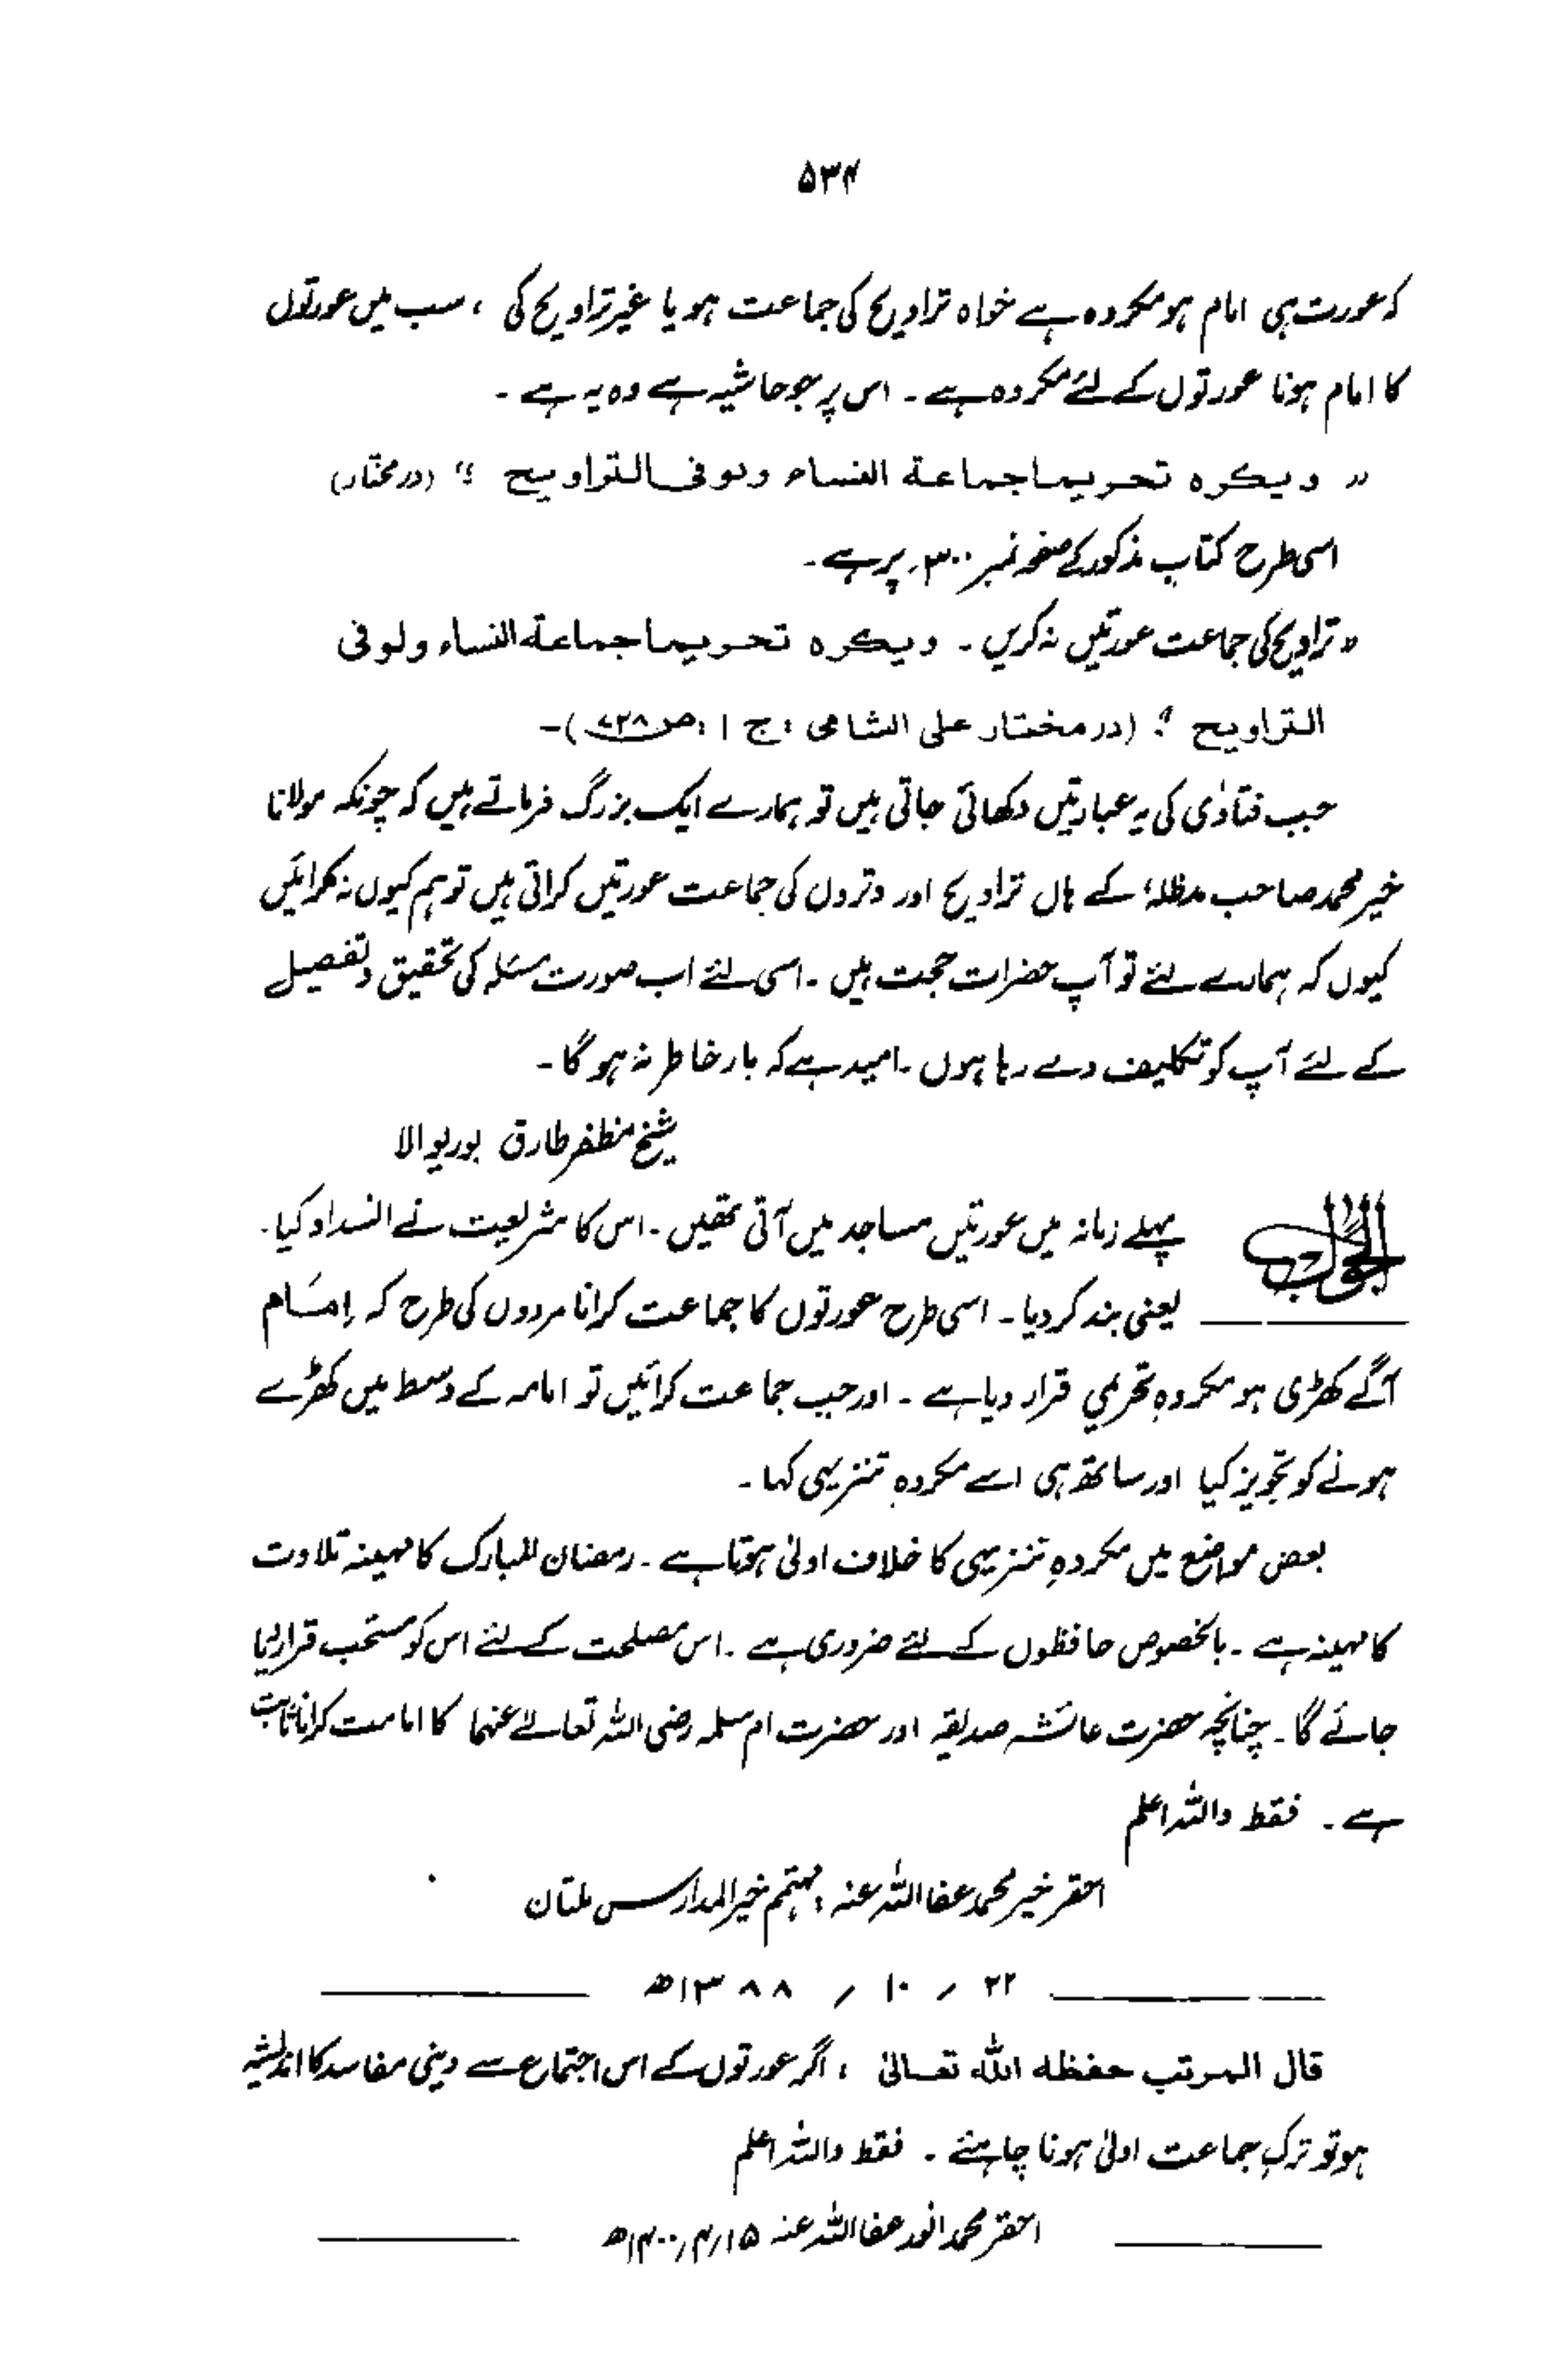 ۵۳۴
کہ عورت ہی امام ہو مکروہ ہے خواہ تراویح کی جماعت ہو یا غیر تراویح کی ، سب میں عورتوں
کا امام ہونا عورتوں کے لئے مکروہ ہے ۔ اس پر جو حاشیہ ہے وہ یہ ہے ۔
” ویکرہ تحریما جماعۃ النساء ولو فی التراویح “ (درمختار)
اسی طرح کتاب مذکور کے صفحہ نمبر ۳۰۰ پر ہے ۔
” تراویح کی جماعت عورتیں نہ کریں ۔ ویکرہ تحریما جماعۃ النساء ولو فی
التراویح “ (در مختار علی الشامی ، ج ۱ ، ص)۔
جب فتاوٰی کی یہ عبارتیں دکھائی جاتی ہیں تو ہمارے ایک بزرگ فرماتے ہیں کہ چونکہ مولانا
خیر محمد صاحب مدظلہٗ کے ہاں تراویح اور وتروں کی جماعت عورتیں کراتی ہیں تو ہم کیوں نہ کرائیں
کیوں کہ ہمارے لئے تو آپ حضرات حجت ہیں ۔ اسی لئے اب صورت مسئلہ کی تحقیق و تفصیل
کے لئے آپ کو تکلیف دے رہا ہوں ۔ امید ہے کہ بار خاطر نہ ہو گا ۔
شیخ مظفر طارق بوریوالا
الجواب پہلے زمانہ میں عورتیں مساجد میں آتی تھیں ۔ اس کا شریعت نے انسداد کیا ۔
یعنی بند کر دیا ۔ اسی طرح عورتوں کا جماعت کرانا مردوں کی طرح کہ اِمام
آگے کھڑی ہو مکروہِ تحریمی قرار دیا ہے ۔ اور جب جماعت کرائیں تو امامہ کے وسط میں کھڑے
ہونے کو تجویز کیا اور ساتھ ہی اسے مکروہِ تنزیہی کہا ۔
بعض مواضع میں مکروہِ تنزیہی کا خلاف اولیٰ ہوتا ہے ۔ رمضان المبارک کا مہینہ تلاوت
کا مہینہ ہے ۔ بالخصوص حافظوں کے لئے ضروری ہے ۔ اس مصلحت کے لئے اس کو مستحب قرار دیا
جائے گا ۔ چنانچہ حضرت عائشہ صدیقہ اور حضرت ام سلمہ رضی اللہ تعالےٰ عنہما کا امامت کرانا ثابت
ہے ۔ فقط واللہ اعلم
احقر خیر محمد عفا اللہ عنہ ، مہتمم خیر المدارس ملتان
۲۲ / ۱۰ / ۱۳۸۸ھ
قال المرتب حفظہ اللہ تعالیٰ ، اگر عورتوں کے اس اجتماع سے دینی مفاسد کا اندیشہ
ہو تو ترکِ جماعت اولیٰ ہونا چاہئے ۔ فقط واللہ اعلم
احقر محمد انور عفا اللہ عنہ ۱۵/۴/۱۴۰۰ھ